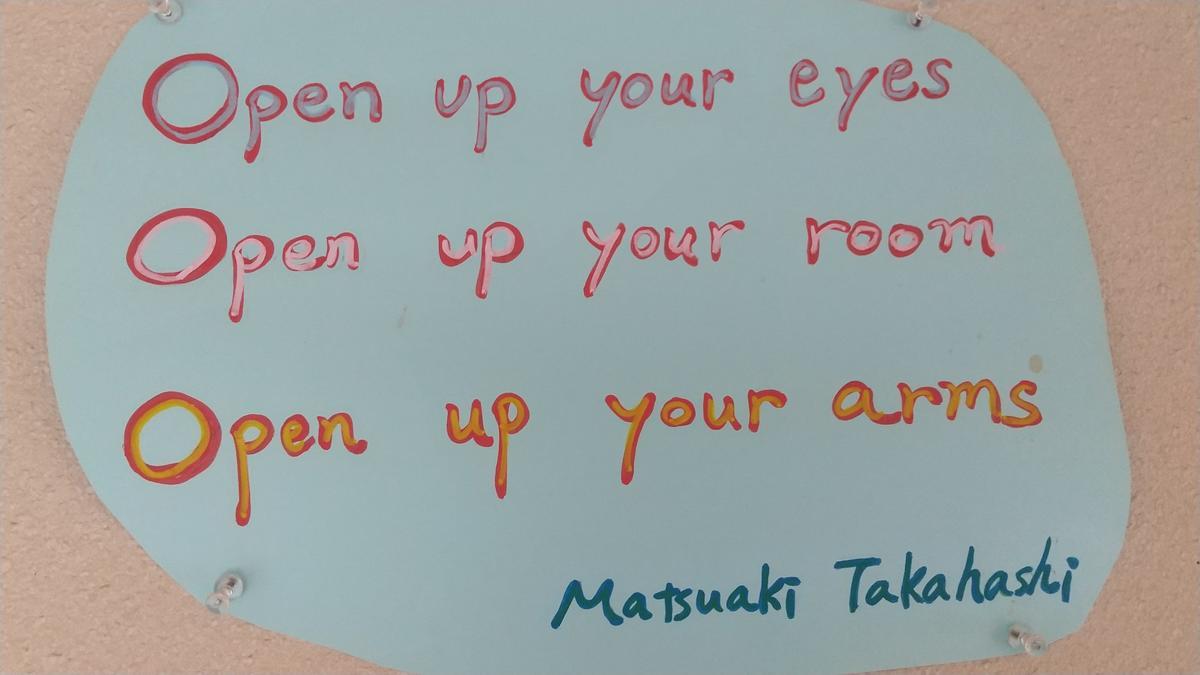 Open up your eyes
Open up your room
Open up your arms
Matsuaki Takahashi